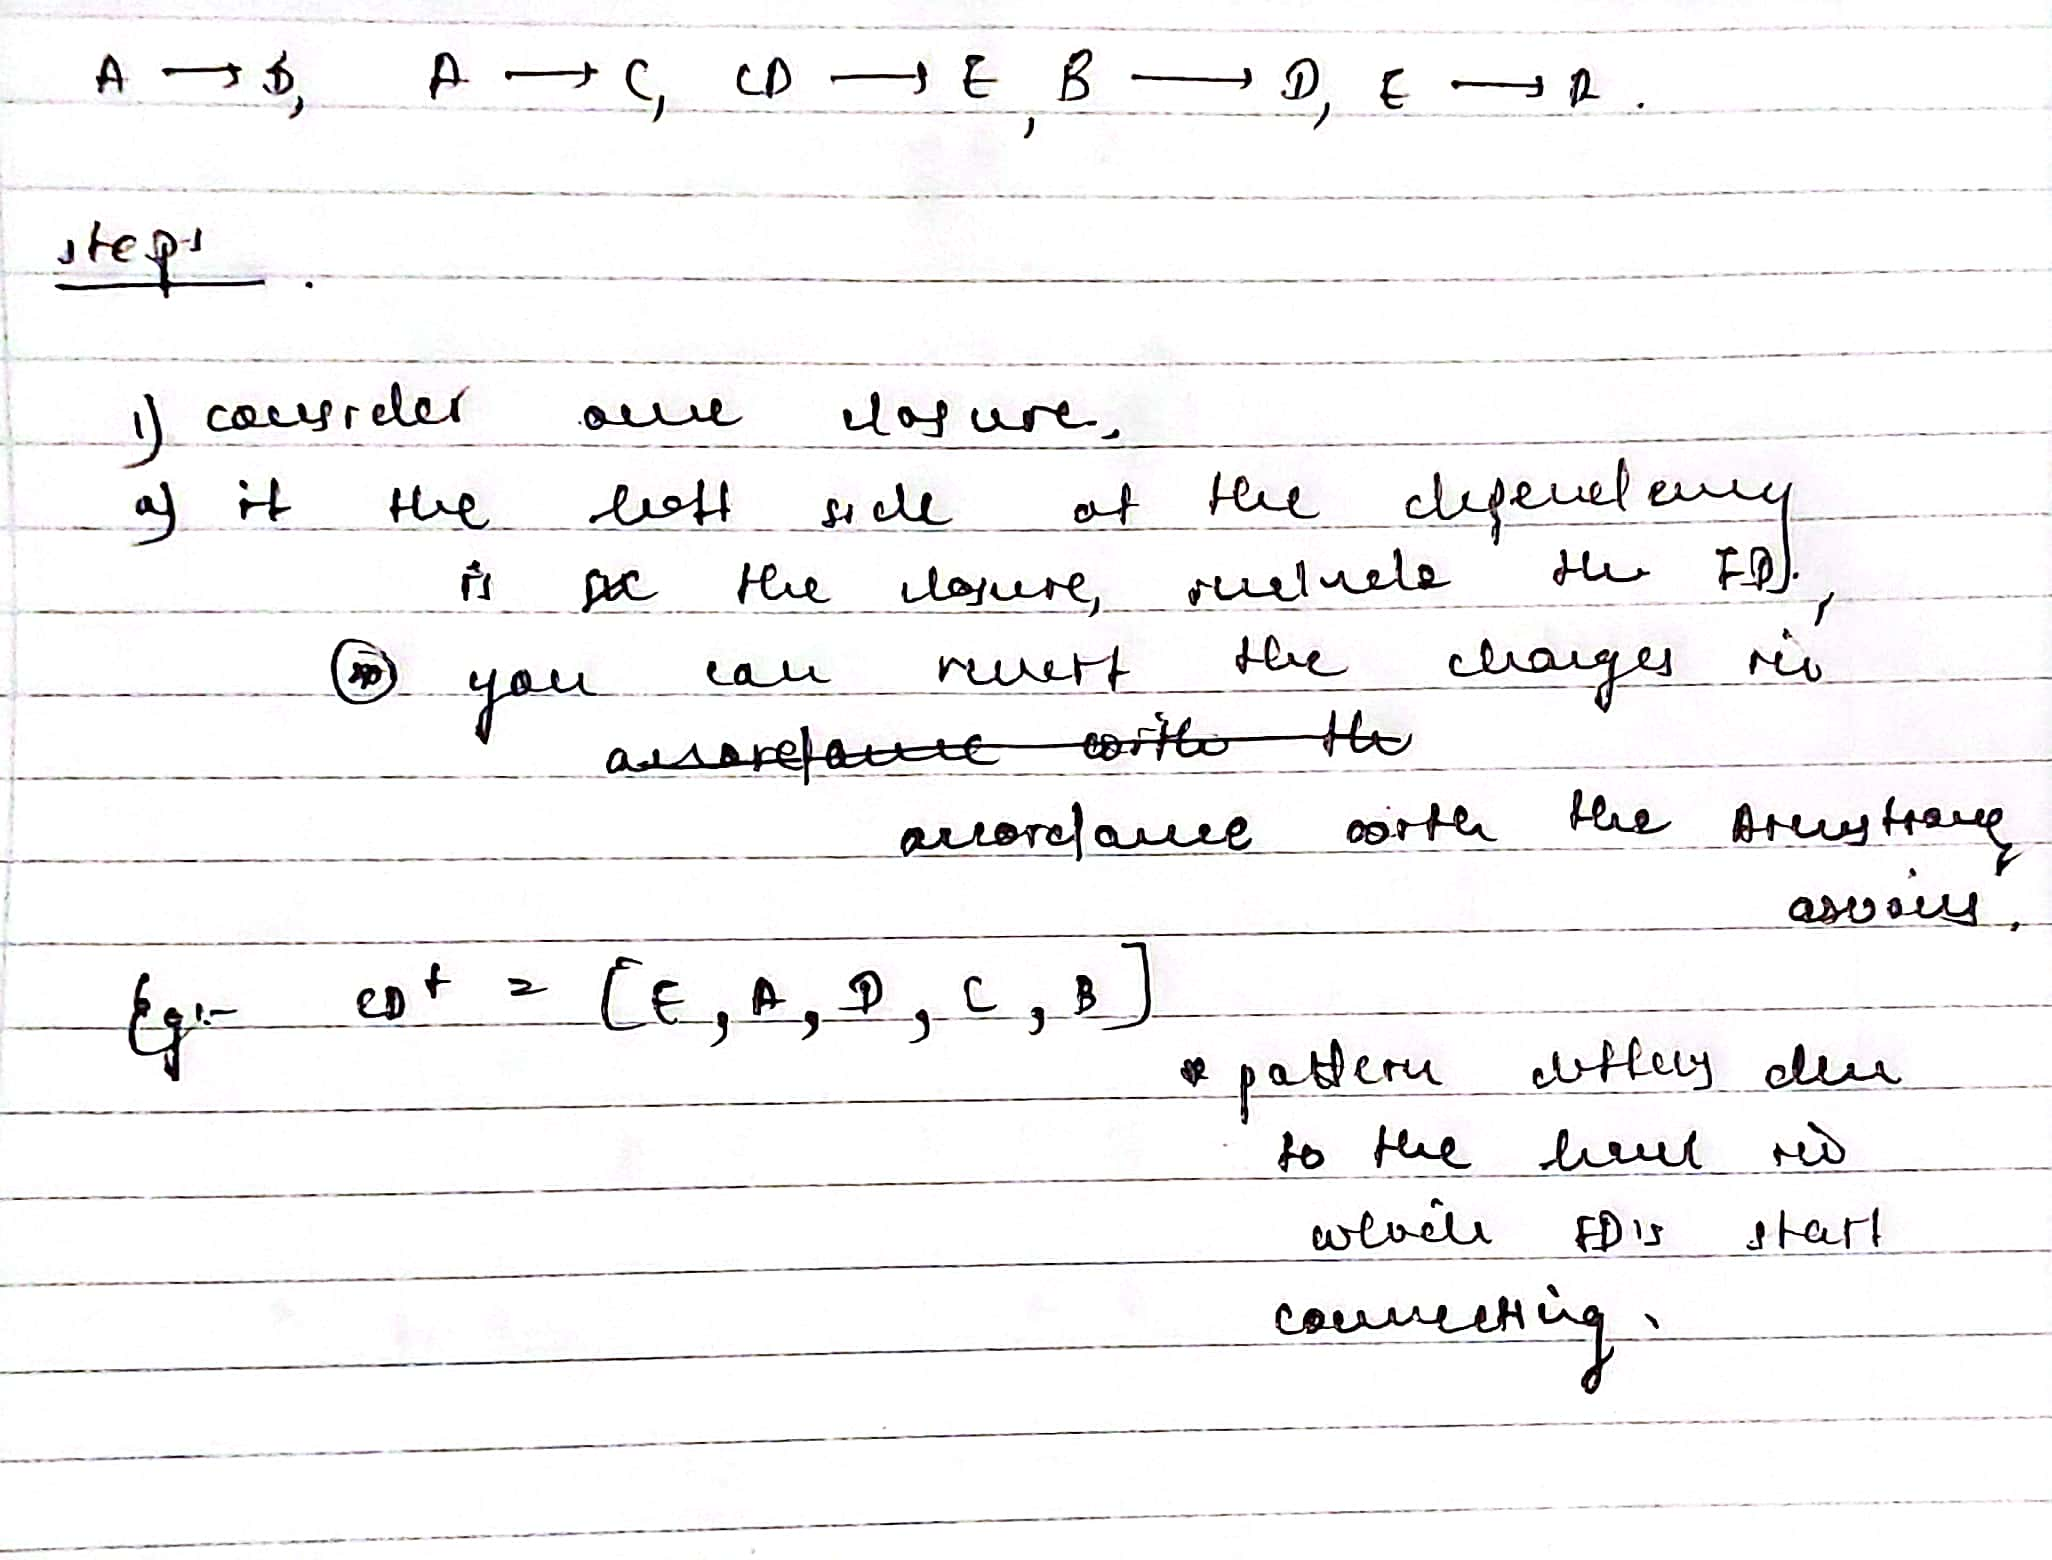 A → B, A → C, CD → E, B → D, E → A.
steps.
1) consider one closure,
a) if the left side of the dependency
is the closure, include the FD.,
you can revert the changes in
accordance with the
accordance with the Armstrong
axioms,
Eg:- CD+ = [E, A, D, C, B]
* pattern differs due
to the level in
which FD is start
connecting.